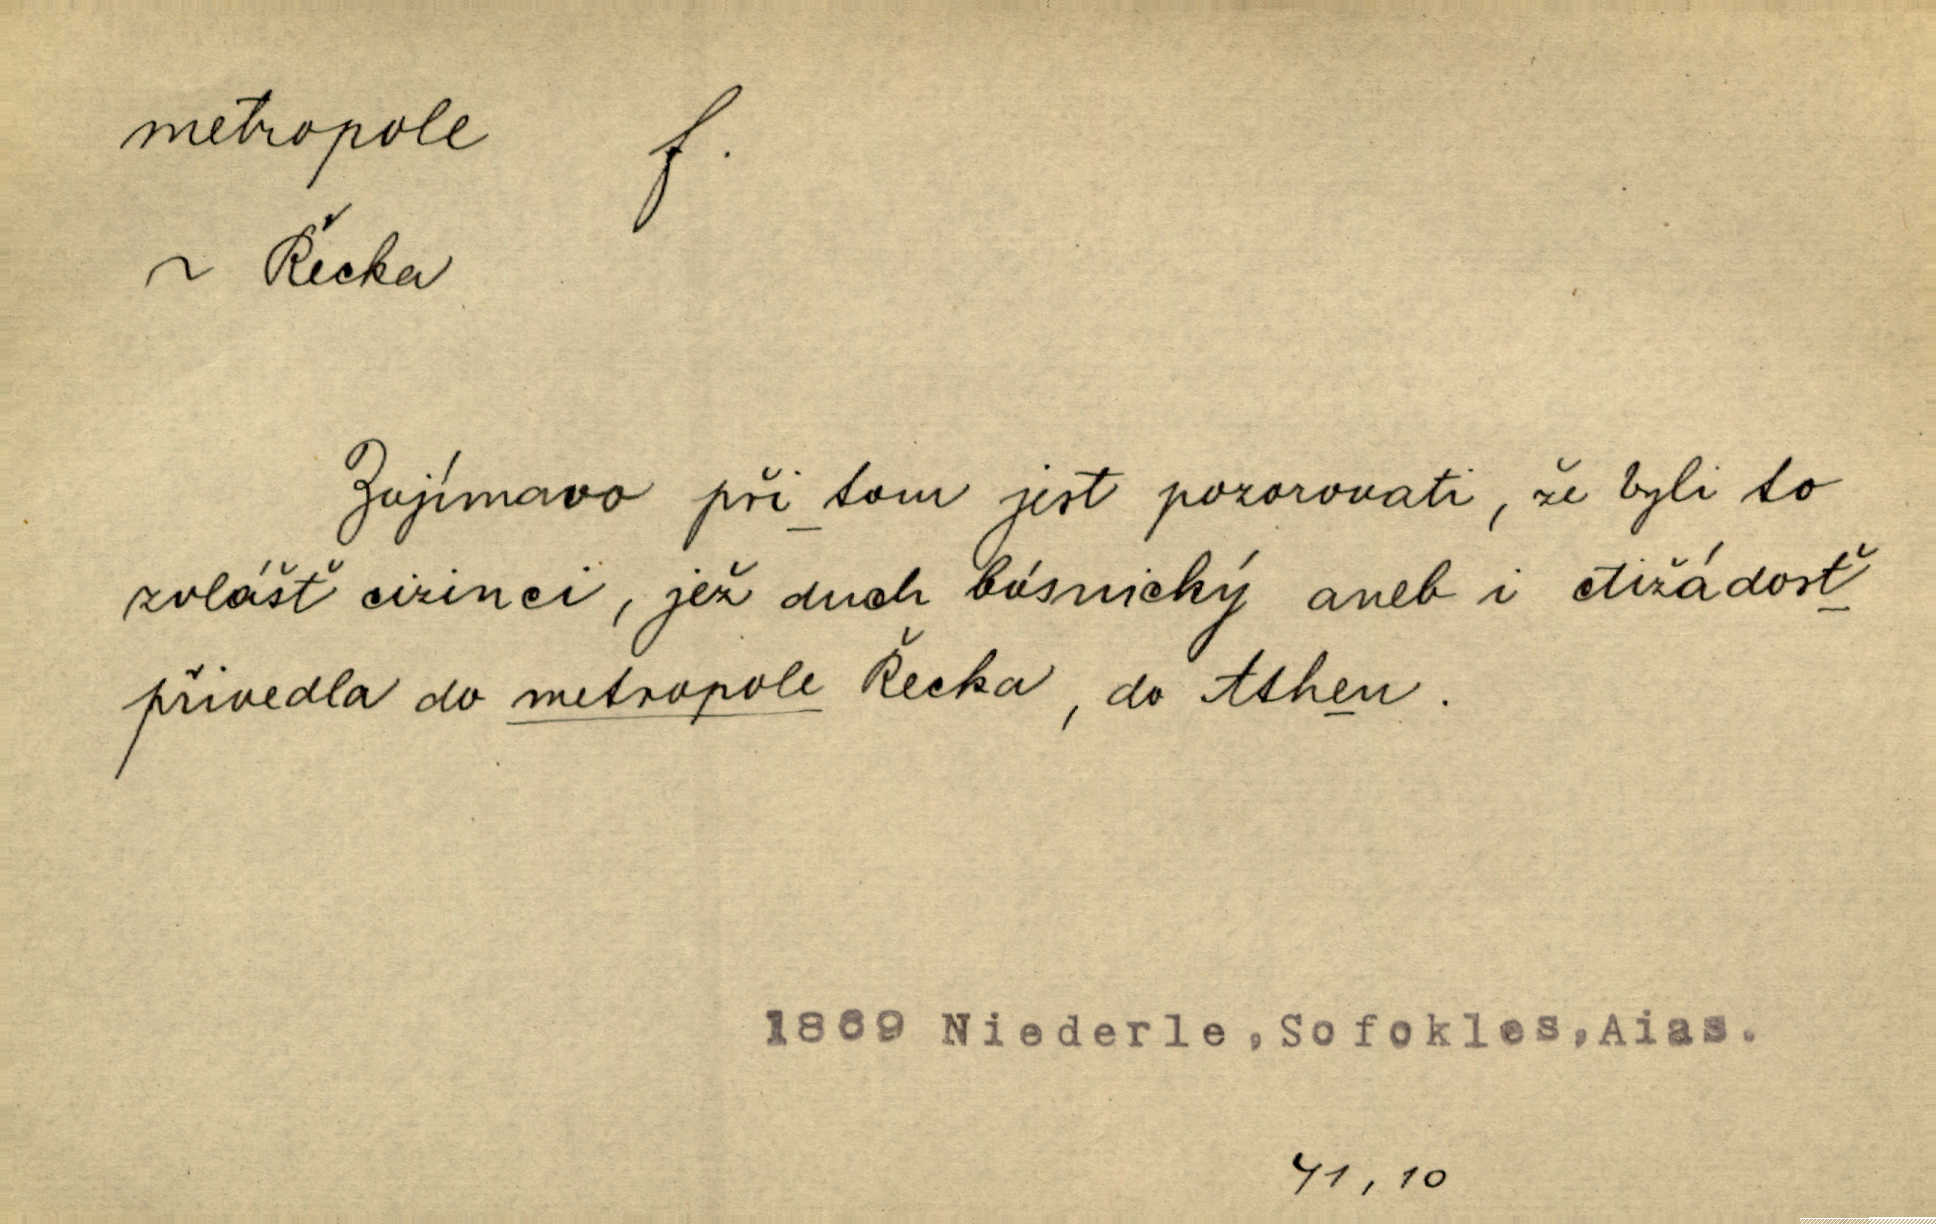 metropole f.
~ Řecka
Zajímavo při tom jest pozorovati, že byli to
zvlášť cizinci, jež duch básnický aneb i ctižádosť
přivedla do metropole Řecka, do Athen.
1869 Niederle,Sofokles,Aias.
41,10